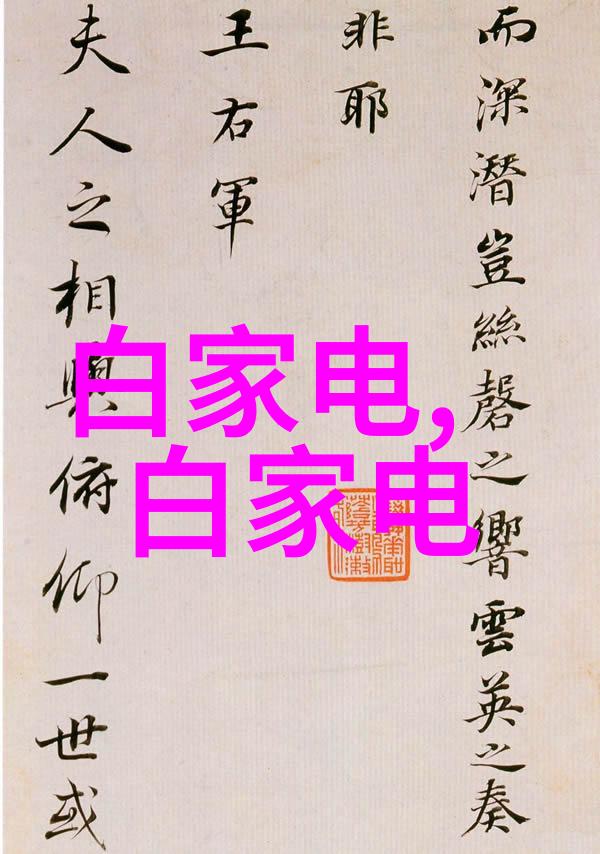 而深潛豈絲磬之響雲英之奏
非耶
王右軍
夫人之相與俯仰一世或
白家电,
白家电